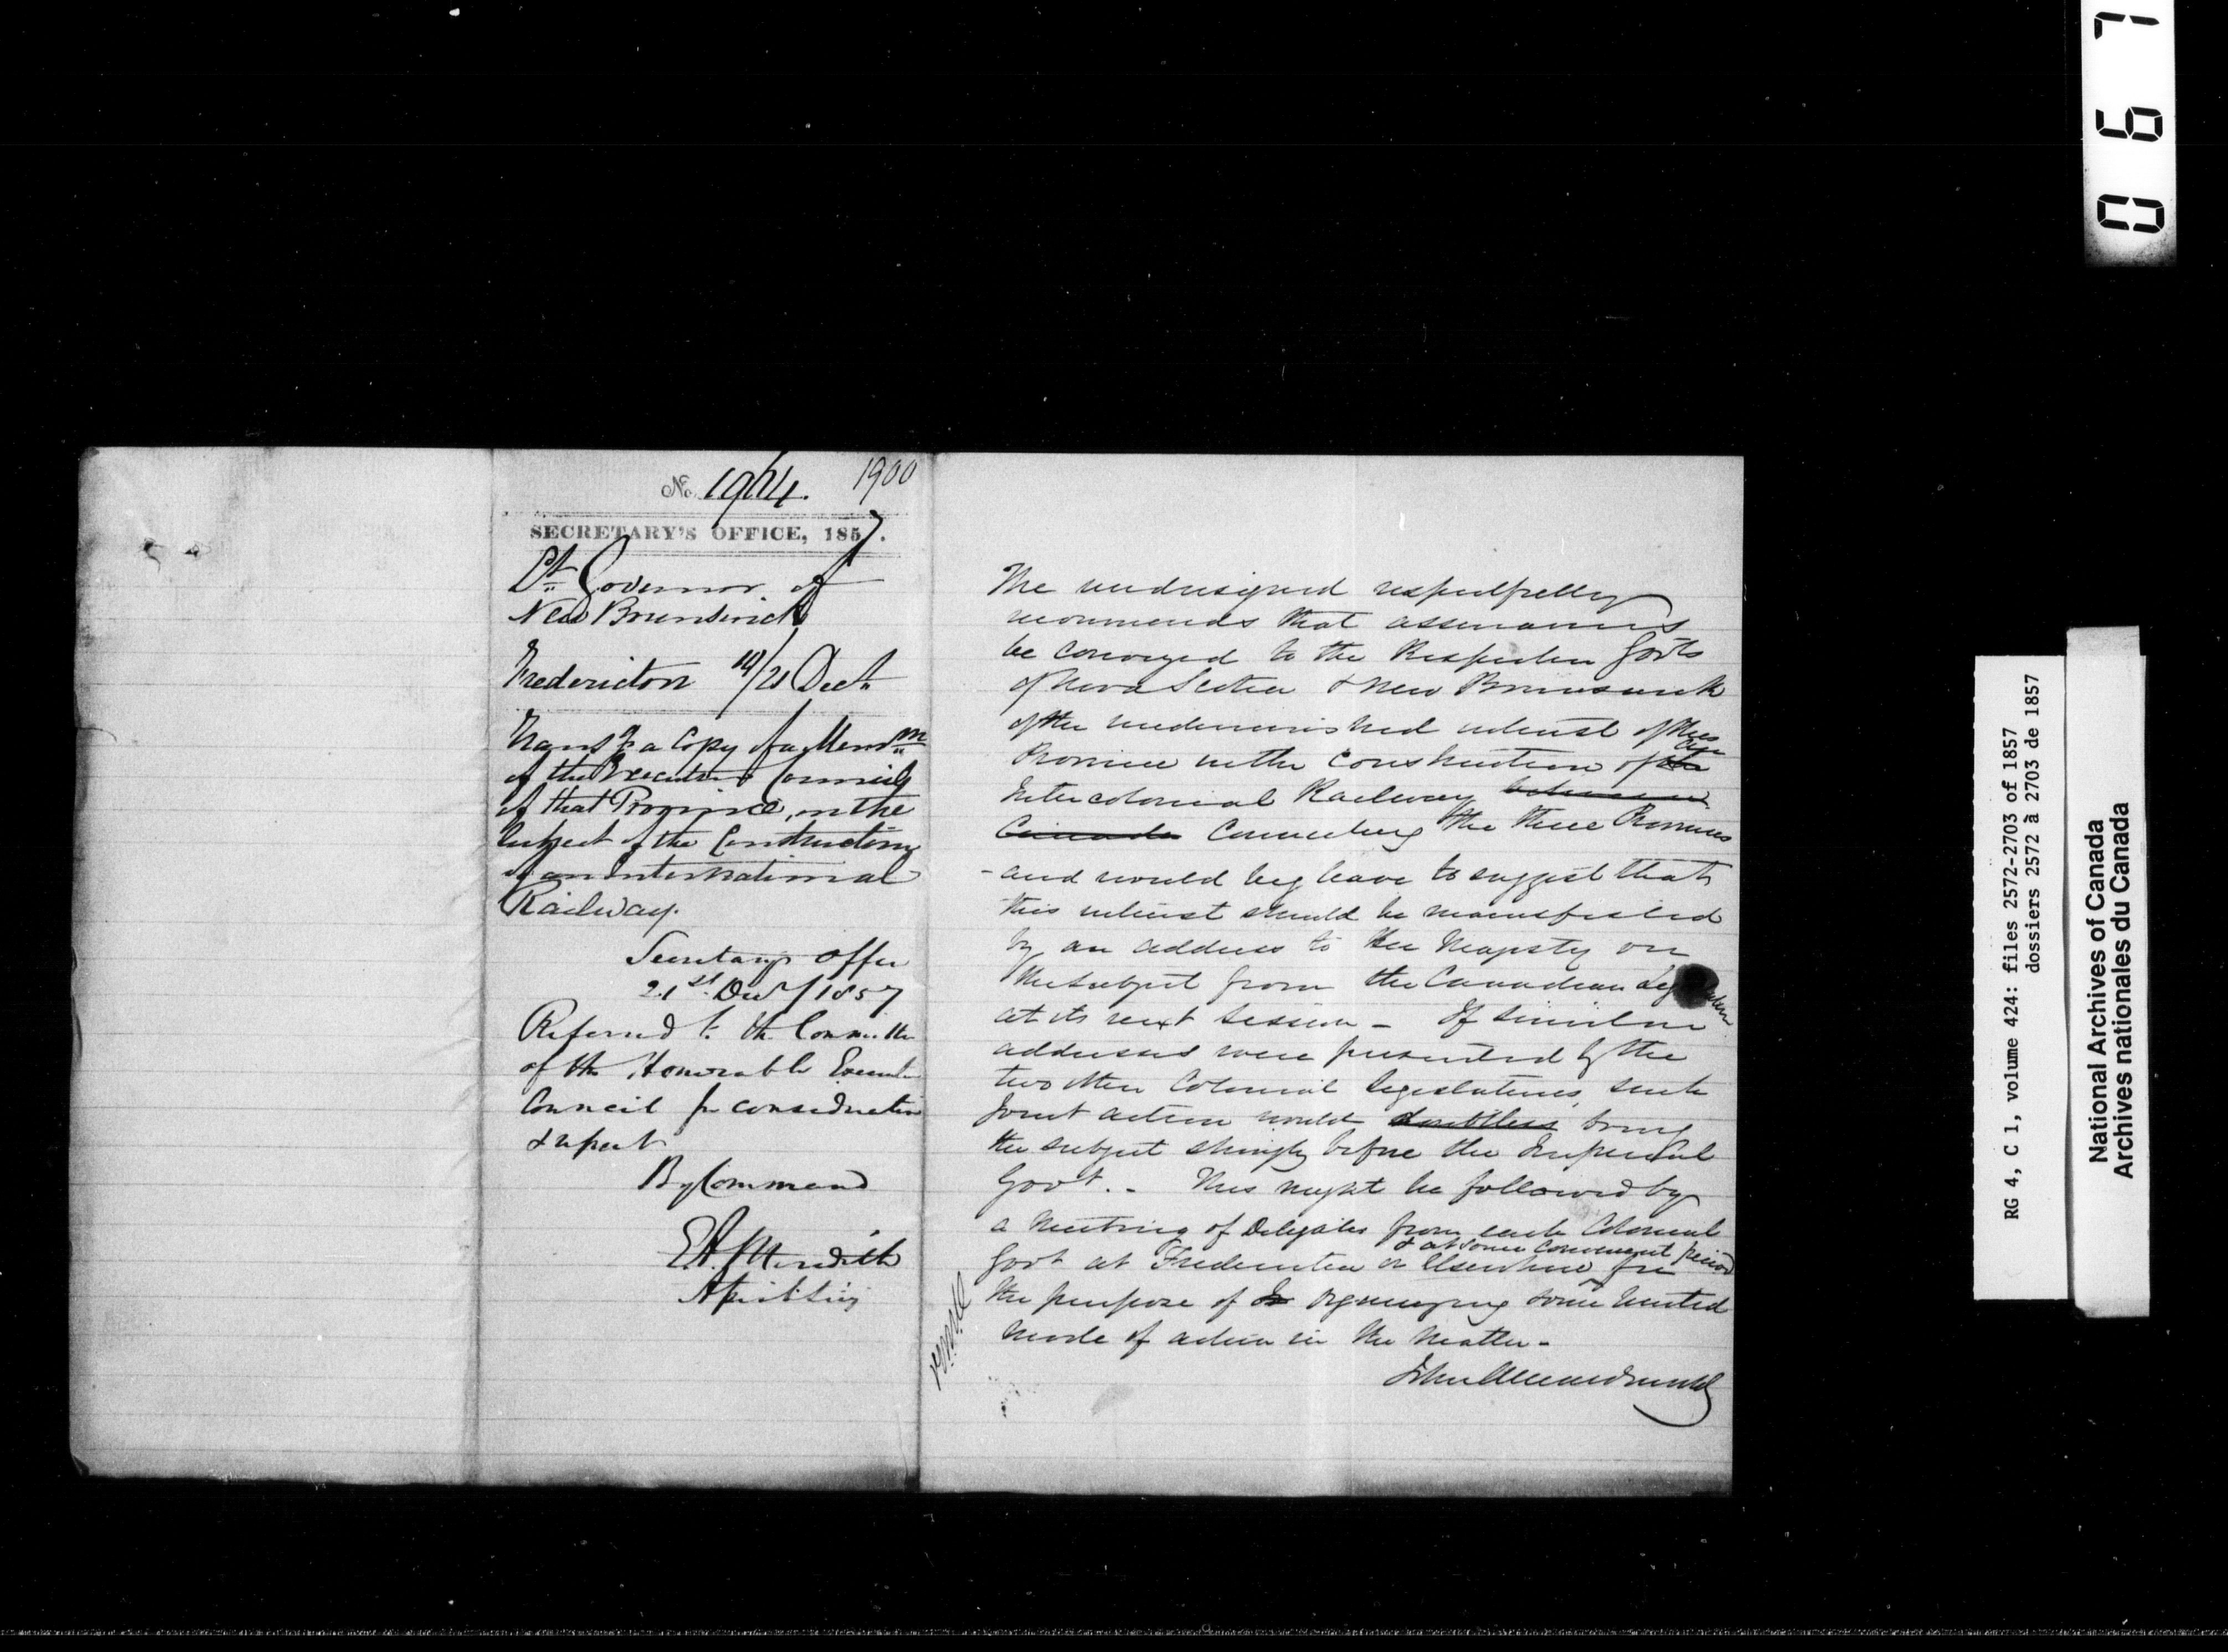 No. 1904. 1900
SECRETARY'S OFFICE, 1857.
Lt. Governor of
New Brunswick
Fredericton 14/21 Decr.
a Copy of a Memdm
of the Executive Council
of that Province, on the
Subject of the Construction
of an International
Railway.
Secretarys Office
21st Decr/1857
Referred to the Committee
of the Honorable Executive
Council for consideration
& report
By Command
E A Meredith
The undersigned respectfully
recommends that assurances
be conveyed to the Respective Govts
of Nova Scotia & New Brunswick
of the undiminished interest of this
Province in the construction of the an
Intercolonial Railway between
Canada Connecting the three Provinces
- and would beg leave to suggest that
this interest should be manifested
by an address to Her Majesty on
the subject from the Canadian
at its next Session - If similar
addresses were presented by the
two other Colonial Legislatures, such
joint action would doubtless bring
the subject strongly before the Imperial
Govt. - This might be followed by
a meeting of Delegates from each Colonial
Govt at Fredericton or Elsewhere & at some convenient period for
the purpose of organizing some united
mode of action in the matter -
John A Macdonald
0 6 7
RG 4, C 1, volume 424: files 2572-2703 of 1857
dossiers 2572 à 2703 de 1857
National Archives of Canada
Archives nationales du Canada